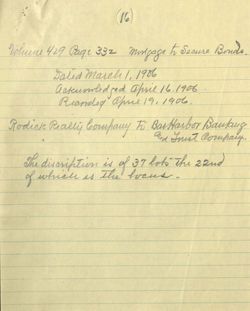 (16)
Volume 429 Page 332 Mortgage to Secure Bonds.
Dated March 1, 1906
Acknowledged April 16, 1906.
Recorded April 19, 1906.
Rodick Realty Company to Bar Harbor Banking
and Trust Company.
The discription is of 37 lots the 22nd
of which is the locus.